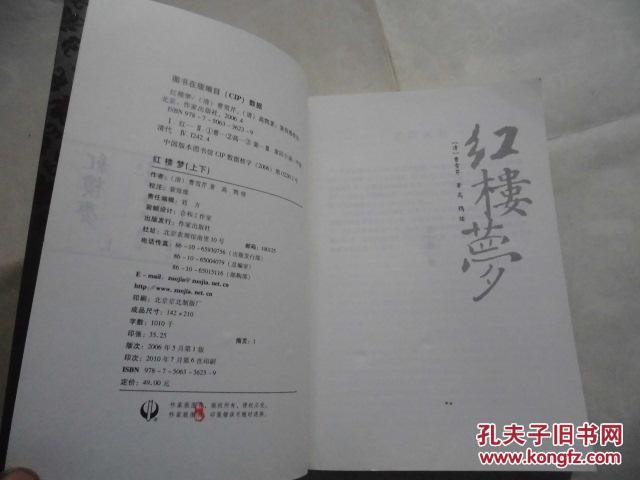 图书在版编目（CIP）数据
红楼梦/（清）曹雪芹，（清）高鹗著；
北京：作家出版社，2006.4
ISBN 978-7-5063-3623-9
Ⅰ.红… Ⅱ.①曹…②高…③
清代 Ⅳ.I242.4
中国版本图书馆CIP数据核字（2006）第
红楼梦(上下)
作者：（清）曹雪芹 著 高 鹗 续
责任编辑：
装帧设计：合和工作室
出版发行：作家出版社
社址：北京农展馆南里10号 邮码：100125
电话传真：86-10-65930756（出版发行部）
86-10-65004079（总编室）
86-10-65015116（邮购部）
E-mail：zuojia@zuojia.net.cn
http://www.zuojia.net.cn
印刷：北京京北制版厂
成品尺寸：142×210
字数：1010千
印张：35.25 插页：1
版次：2006年5月第1版
印次：2010年7月第6次印刷
ISBN 978-7-5063-3623-9
定价：49.00元
作家版图书，版权所有，侵权必究。
作家版图书，印装错误可随时退换。
红楼梦
（清）曹雪芹 著 高 鹗 续
孔夫子旧书网
KONGFZ.COM